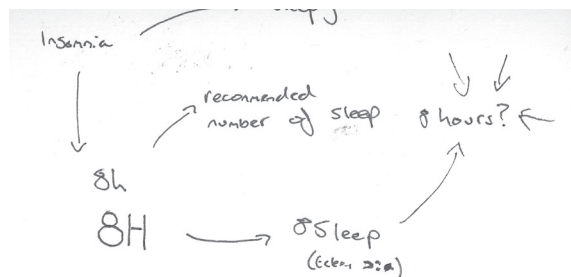 Insomnia
recommended
number of sleep
8 hours?
8h
8H
8Sleep